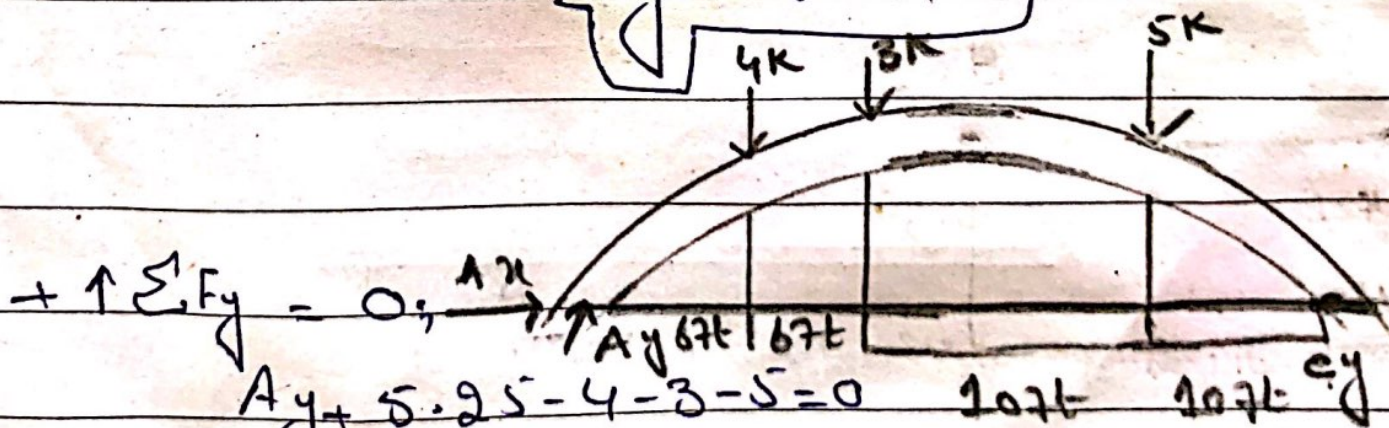 4K 3K 5K
+ ↑ ΣFy = 0; Ax
Ay 6ft 6ft
Ay + 5.25 - 4 - 3 - 5 = 0 10ft 10ft cy